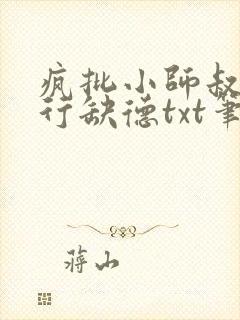 疯批小師叔
行缺德txt筆
蒋山